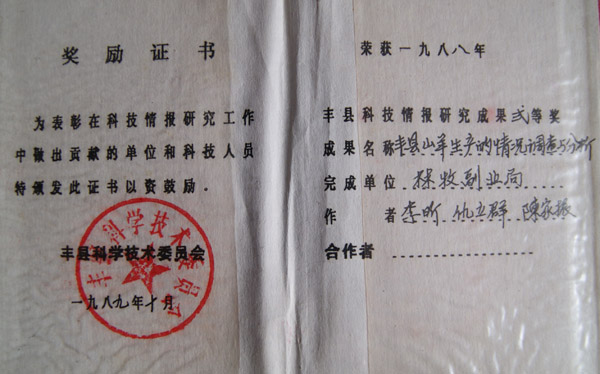 奖励证书
为表彰在科技情报研究工作
中做出贡献的单位和科技人员
特颁发此证书以资鼓励.
丰县科学技术委员会
丰县科学技术委员会
一九八九年十月
荣获一九八八年
丰县科技情报研究成果弍等奖
成果名称丰县山羊生产的情况调查与分析
完成单位.林牧副业局.....
作 者李昕 仇立群 陳家振
合作者................